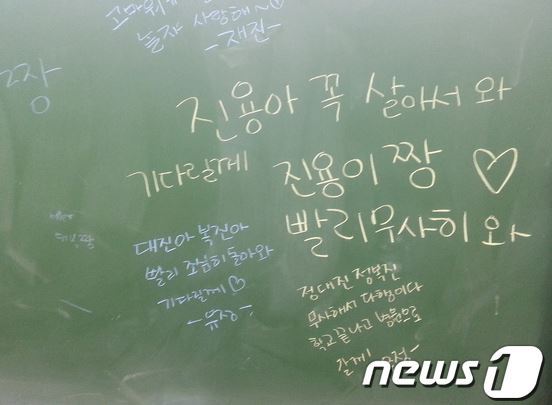 고마워
놀자 사랑해~
-재진-
짱
진용아 꼭 살아서 와
기다릴게
진용이 짱 ♡
빨리 무사히 와
대진아 복진아
빨리 조심히 돌아와
기다릴게 ♡
정대진 정복진
무사해서 다행이다
학교끝나고 병원으로
갈게!
news1